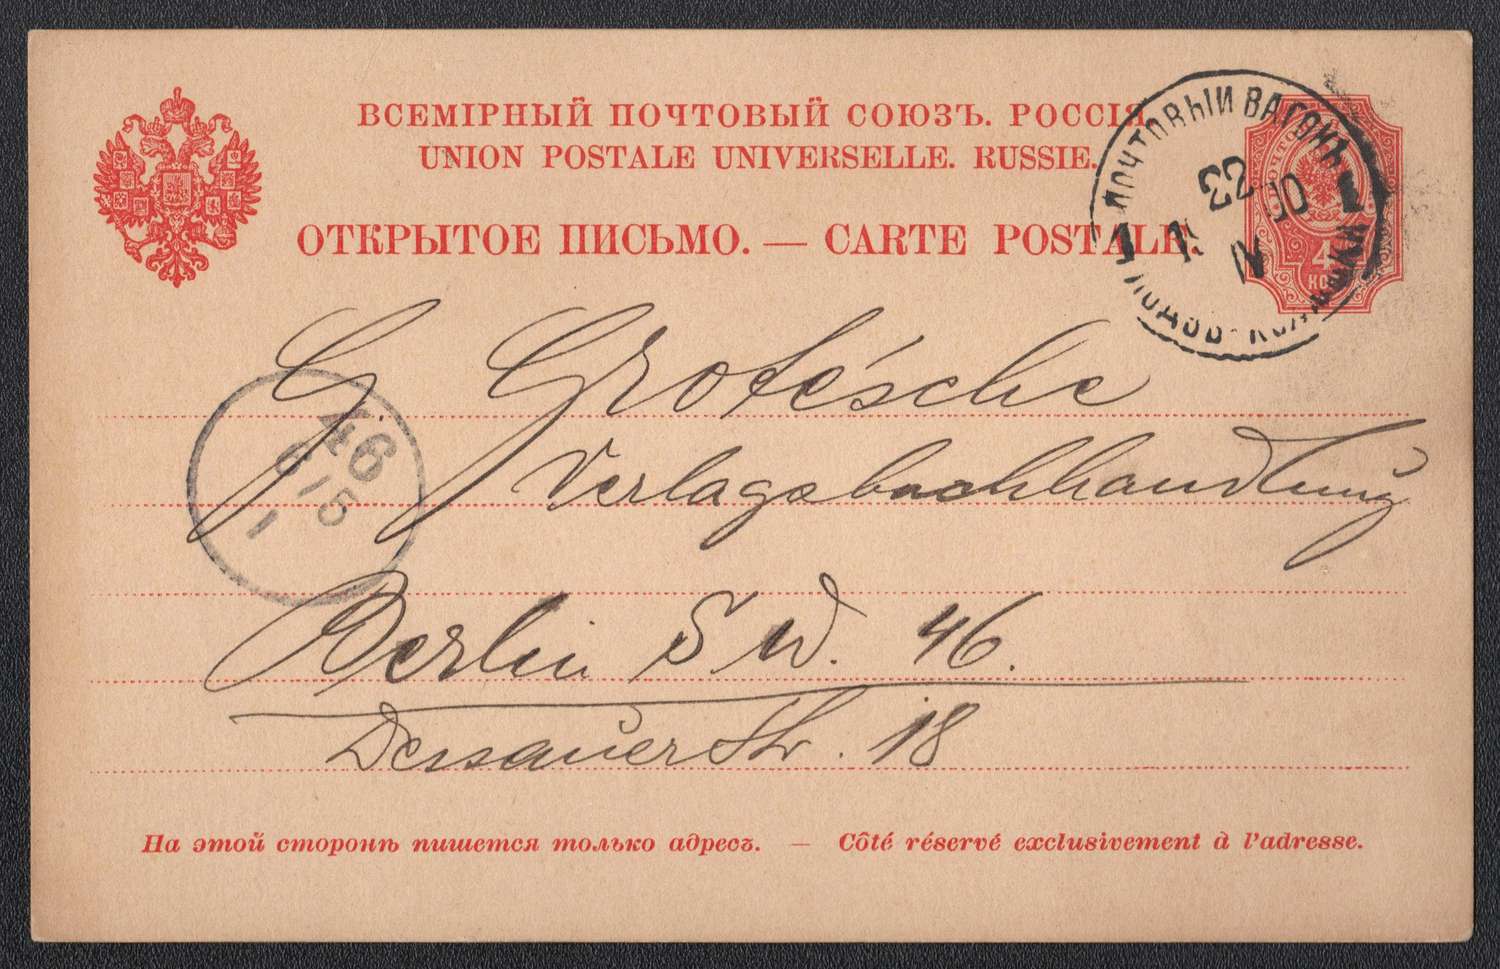 ВСЕМІРНЫЙ ПОЧТОВЫЙ СОЮЗЪ. РОССІЯ.
UNION POSTALE UNIVERSELLE. RUSSIE.
ОТКРЫТОЕ ПИСЬМО. — CARTE POSTALE.
ПОЧТОВЫЙ ВАГОНЪ
22
IV 00
4
КОП
G Grote'sche
Verlagsbuchhandlung
46
6/5
1
Berlin S W. 46.
Dessauer Str. 18
На этой сторонѣ пишется только адресъ. — Côté réservé exclusivement à l'adresse.